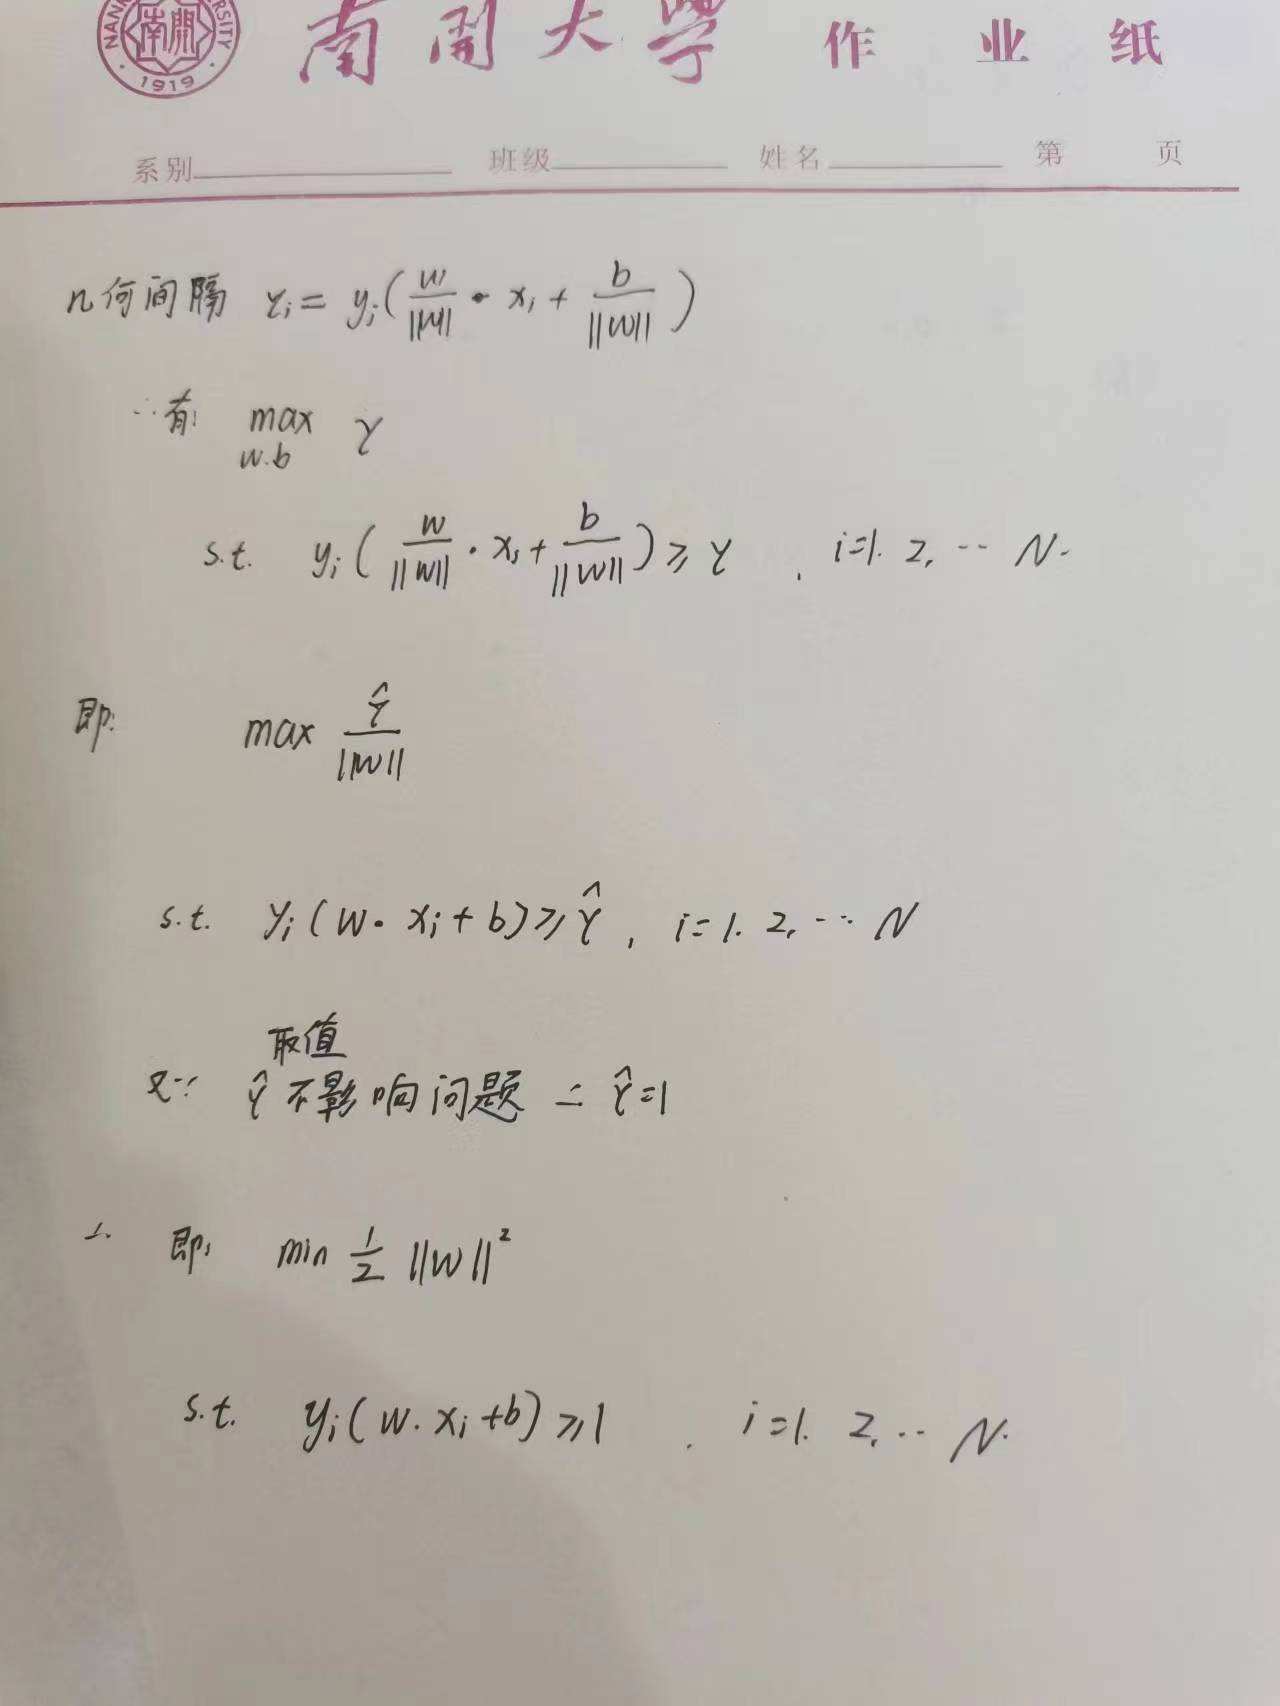 NANKAI UNIVERSITY 南開 · 1919 · 南開大學 作业纸
系别 班级 姓名 第 页
几何间隔 γi = yi( w/||w|| · xi + b/||w|| )
∴有: max w.b γ
s.t. yi( w/||w|| · xi + b/||w|| ) ≥ γ , i=1. 2, ··· N.
即: max γ̂/||w||
s.t. yi(w· xi + b) ≥ γ̂ , i=1. 2, ··· N
取值
又∵ γ̂ 不影响问题 ∴ γ̂=1
∴ 即: min 1/2 ||w||²
s.t. yi(w. xi +b) ≥1 . i=1. 2, ·· N.